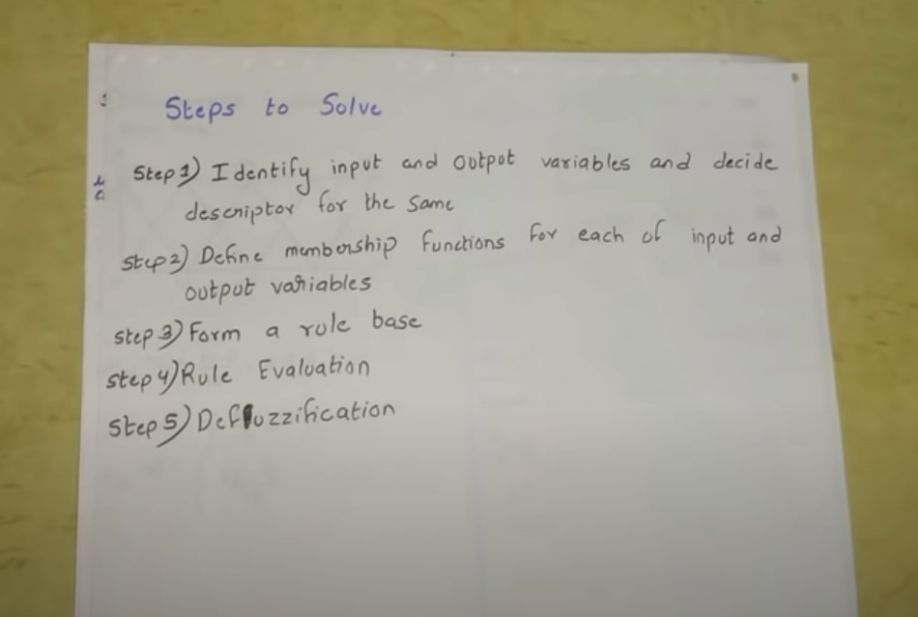 Steps to Solve
Step 1) Identify input and output variables and decide
descriptor for the same
step 2) Define membership functions for each of input and
output variables
step 3) Form a rule base
step 4) Rule Evaluation
step 5) Deffuzzification